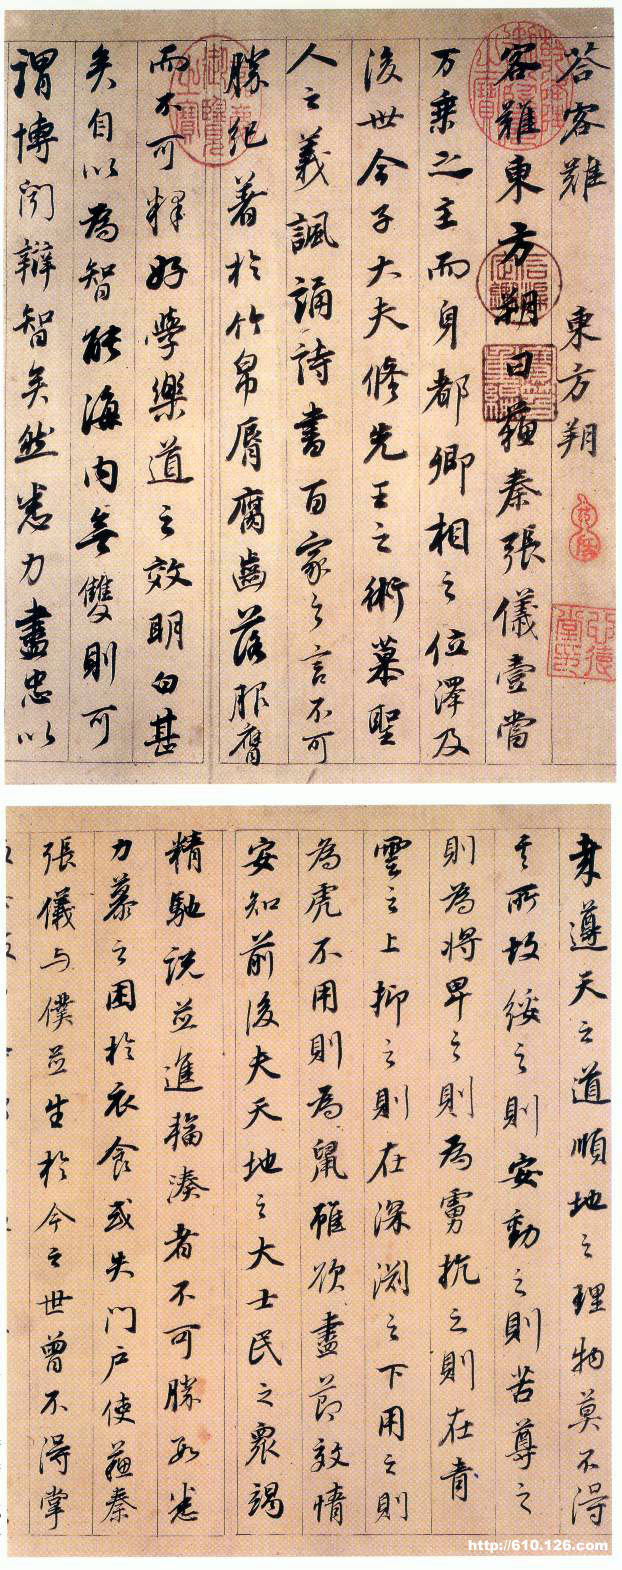 荅客難 東方朔
客難東方朔曰蘇秦張儀壹當
万乘之主而身都卿相之位澤及
後世今子大夫脩先王之術慕聖
人之義諷誦詩書百家之言不可
勝紀著於竹帛脣腐齒落服膺
而不可釋好學樂道之效明白甚
矣自以為智能海内無雙則可
謂博聞辯智矣然悉力盡忠以
遵天之道順地之理物莫不得
其所故綏之則安動之則苦尊之
則為將卑之則為虜抗之則在青
雲之上抑之則在深淵之下用之則
為虎不用則為鼠雖欲盡節效情
安知前後夫天地之大士民之衆竭
精馳說並進輻湊者不可勝數悉
力慕之困於衣食或失門戶使蘇秦
張儀与僕並生於今之世曾不得掌
http://610.126.com